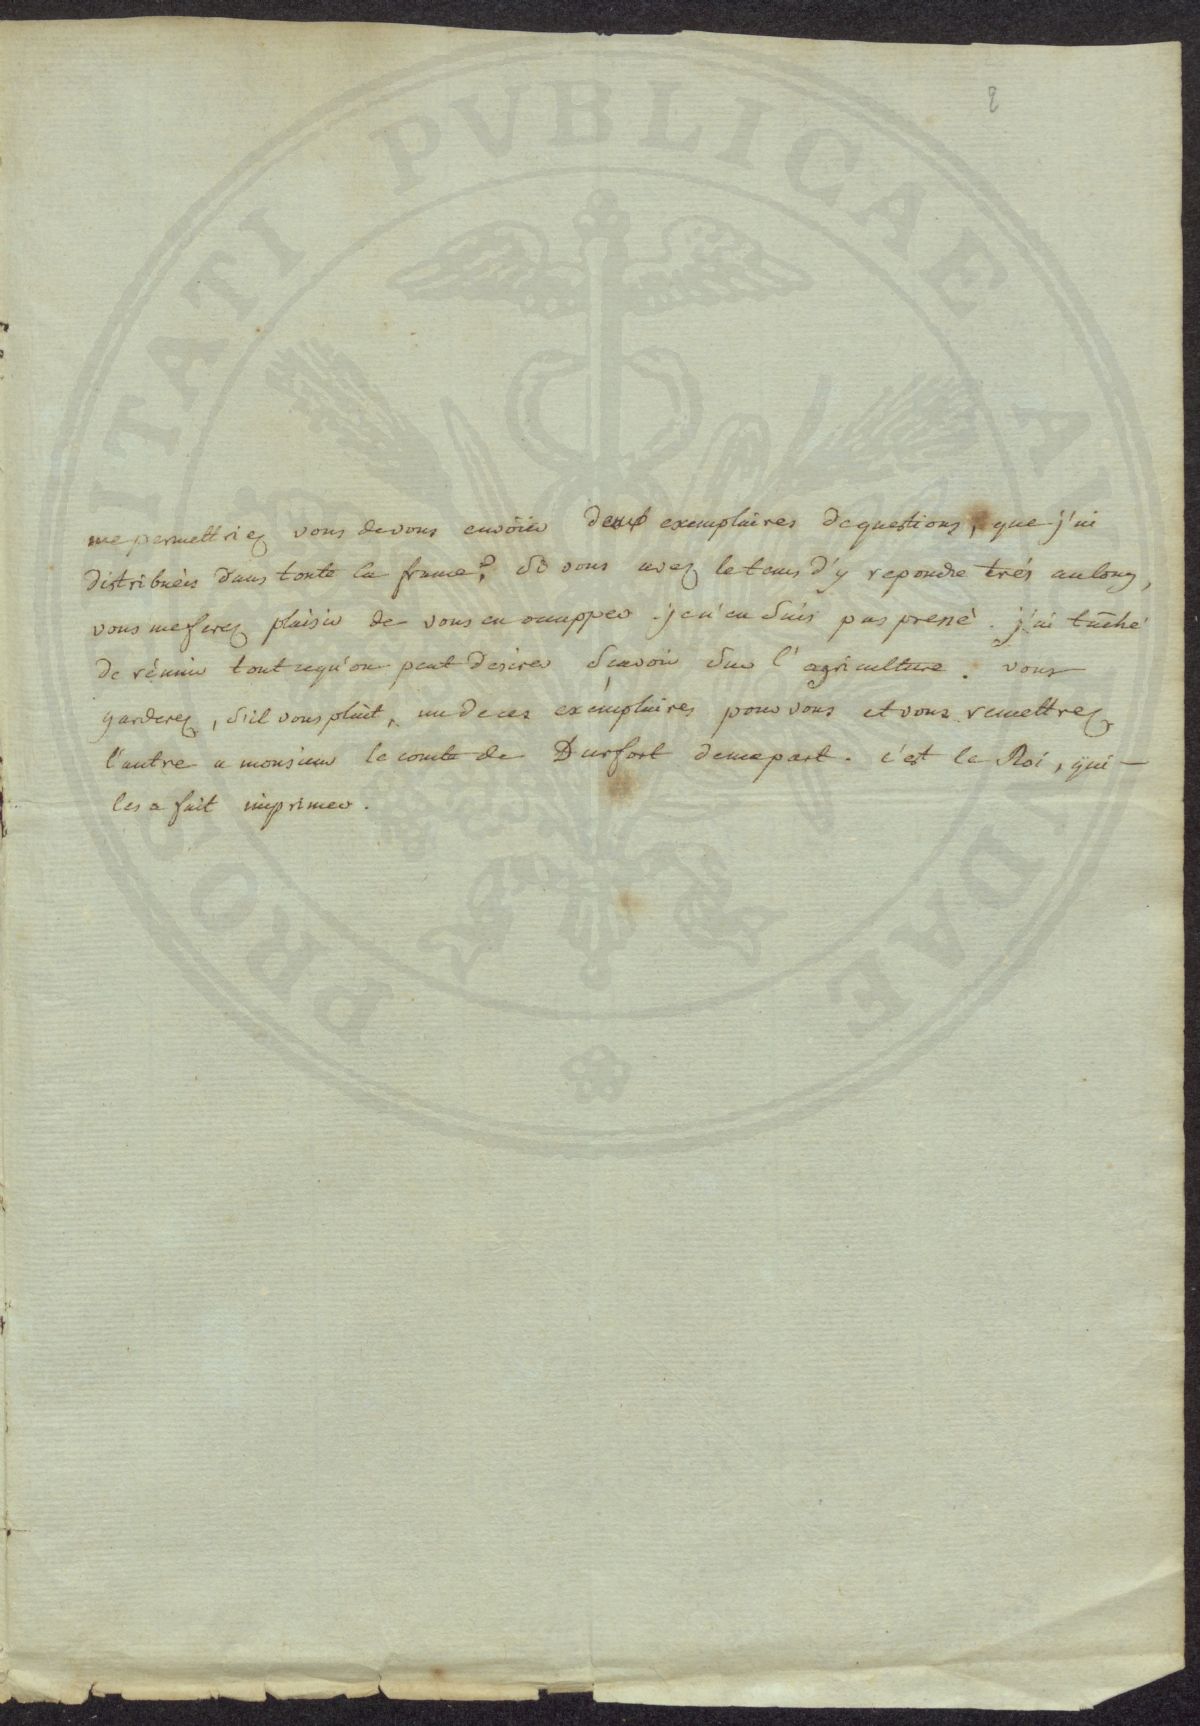 2
PROSPERITATI PVBLICAE AVGENDAE
me permettriez vous de vous envoïer deux exemplaires de questions, que j'ai
distribuées dans toute la france? Si vous avez le tems d'y repondre trés au long,
vous me ferez plaisir de vous en occupper. je n'en suis pas pressé. j'ai tâché
de réunir tout ce qu'on peut desirer sçavoir sur l'agriculture. vous
garderez, s'il vous plait, un de ces exémplaires pour vous et vous remettrez
l'autre a monsieur le comte de Durfort de ma part. c'est le Roi, qui
les a fait imprimer.